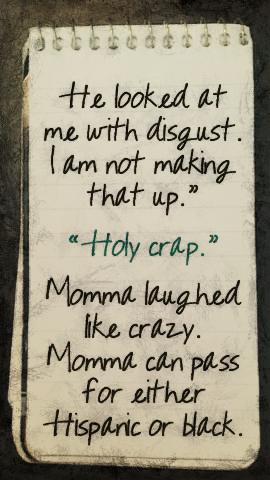 He looked at
me with disgust.
I am not making
that up."
"Holy crap."
Momma laughed
like crazy.
Momma can pass
for either
Hispanic or black.